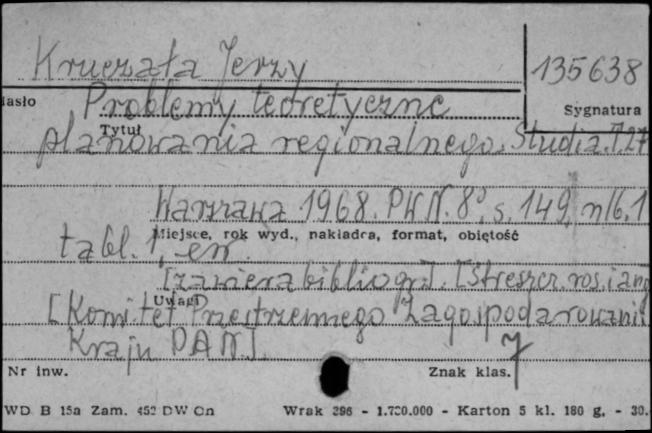 Kruczała Jerzy 135638
Hasło Problemy teoretyczne Sygnatura
Tytuł
planowania regionalnego. Studia T.27
Warszawa 1968. PWN. 8°, s. 149, nlb. 1
Miejsce, rok wyd., nakładca, format, objętość
tabl. 1, err.
[zawiera bibliogr.]. [Streszcz. ros. i ang
Uwagi
[Komitet Przestrzennego Zagospodarowania
Kraju PAN].
7
Nr inw. Znak klas.
WD B 15a Zam. 452 DW Cn Wrak 296 - 1.700.000 - Karton 5 kl. 180 g. - 30.